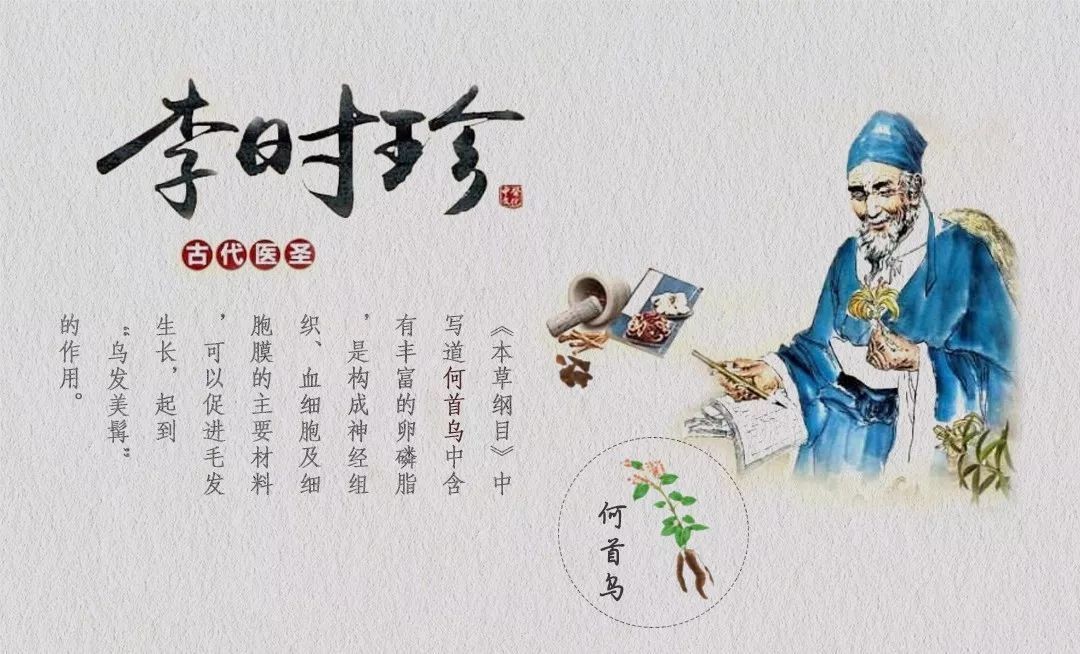 李时珍
古代医圣
《本草纲目》中
写道何首乌中含
有丰富的卵磷脂
，是构成神经组
织、血细胞及细
胞膜的主要材料
，可以促进毛发
生长，起到
“乌发美髯”
的作用。
何首乌